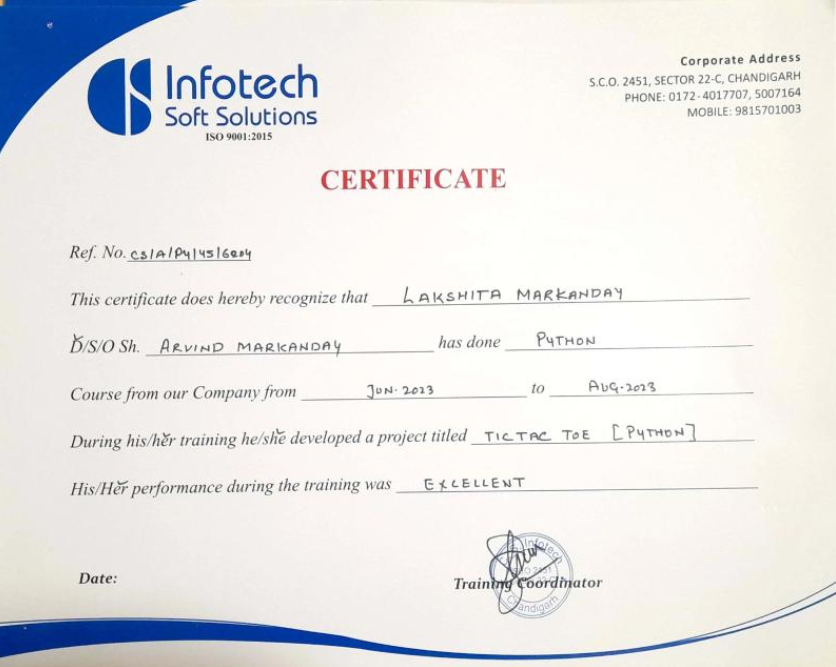 Infotech
Soft Solutions
ISO 9001:2015
Corporate Address
S.C.O. 2451, SECTOR 22-C, CHANDIGARH
PHONE: 0172-4017707, 5007164
MOBILE: 9815701003
CERTIFICATE
Ref. No. CS/A/PY/45/6204
This certificate does hereby recognize that LAKSHITA MARKANDAY
D/S/O Sh. ARVIND MARKANDAY has done PYTHON
Course from our Company from JUN-2023 to AUG-2023
During his/her training he/she developed a project titled TICTAC TOE [PYTHON]
His/Her performance during the training was EXCELLENT
Infotech
Chandigarh
Date:
Training Coordinator